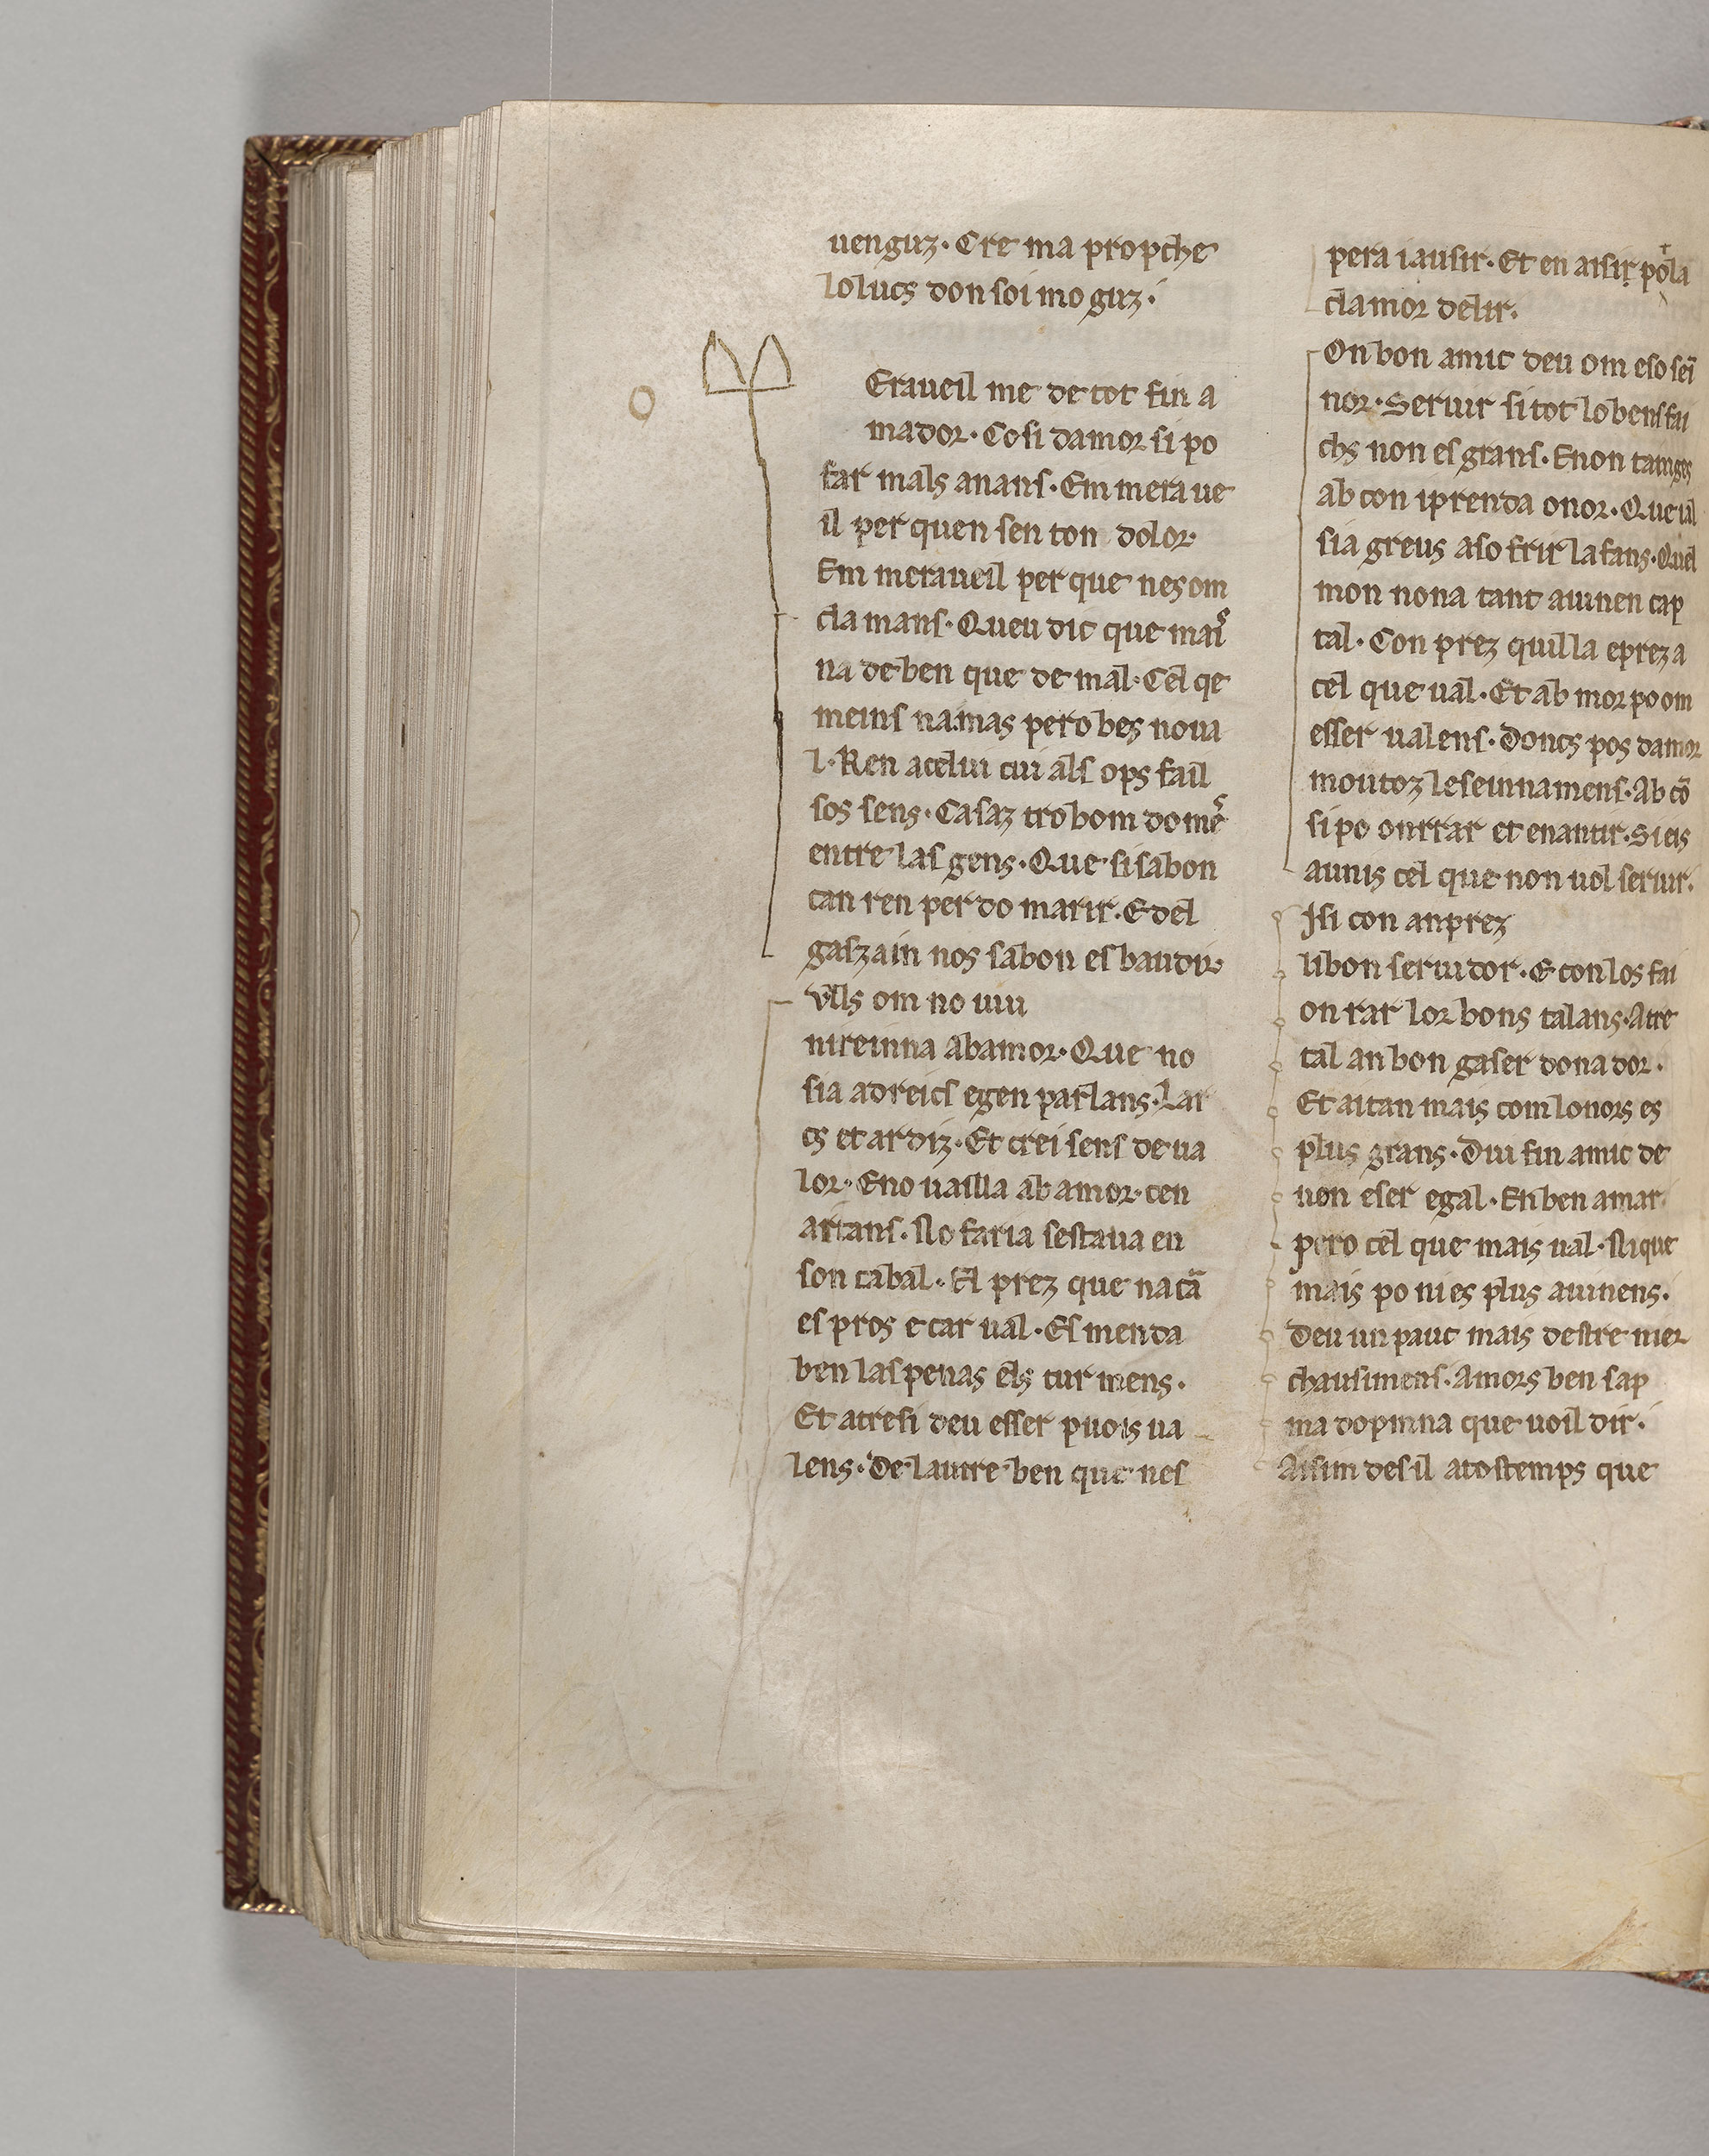 uenguz. Cre ma propche
lolucs don soi mo guz.
o
M
Eraueil me de tot fin a
mador. Cosi damor si po
far mals anans. Em meraue
il per quen sen ton dolor.
Em meraueil per que nes om
clamans. Queu dic que mai
na de ben que de mal. Cel qe
meins namas pero bes noua
l. Ren acelui cui als ops fail
sos sens. Casaz trobom domē
entre las gens. Que si sabon
can ren perdo marir. E del
gaszain nos sabon esbaudir.
Vls om no uiu
nireinna abamor. Que no
sia adreics egen parlans. Lar
cs et ardiz. Et crei sens de ua
lor. Eno uailla ab amor cen
aitans. No faria sestaua en
son cabal. El prez que nacā
es pros e car ual. Esmenda
ben las penas els turmens.
Et atresi deu esser puois ua
lens. De lautre ben que nes
pera iausir. Et en aisir pola
clamor delir.
On bon amic deu om eso sei
nor. Seruir si tot lo bens fai
chs non es grans. Enon tainges
ab con iprenda onor. Que uil
sia greus aso frir lafans. Quel
mon nona tant auinen cap
tal. Con prez quil la eprez a
cel que ual. Et ab mor po om
esser ualens. Doncs pos damor
moutoz leseuinamens. Ab cō
si po onrrar et enantir. Si eis
aunis cel que non uol seruir.
Isi con an prez
li bon seruidor. E con los fai
onrar lor bons talans. Atre
tal an bon gaser donador.
Et aitan mais com lonors es
plus grans. Dui fin amic de
uon eser egal. En ben amar
pero cel que mais ual. Ni que
mais po ni es plus auinens.
Deu un pauc mais destre mer
chausimens. Amors ben sap
ma dopmna que uoil dir.
Aisim desil atostemps que